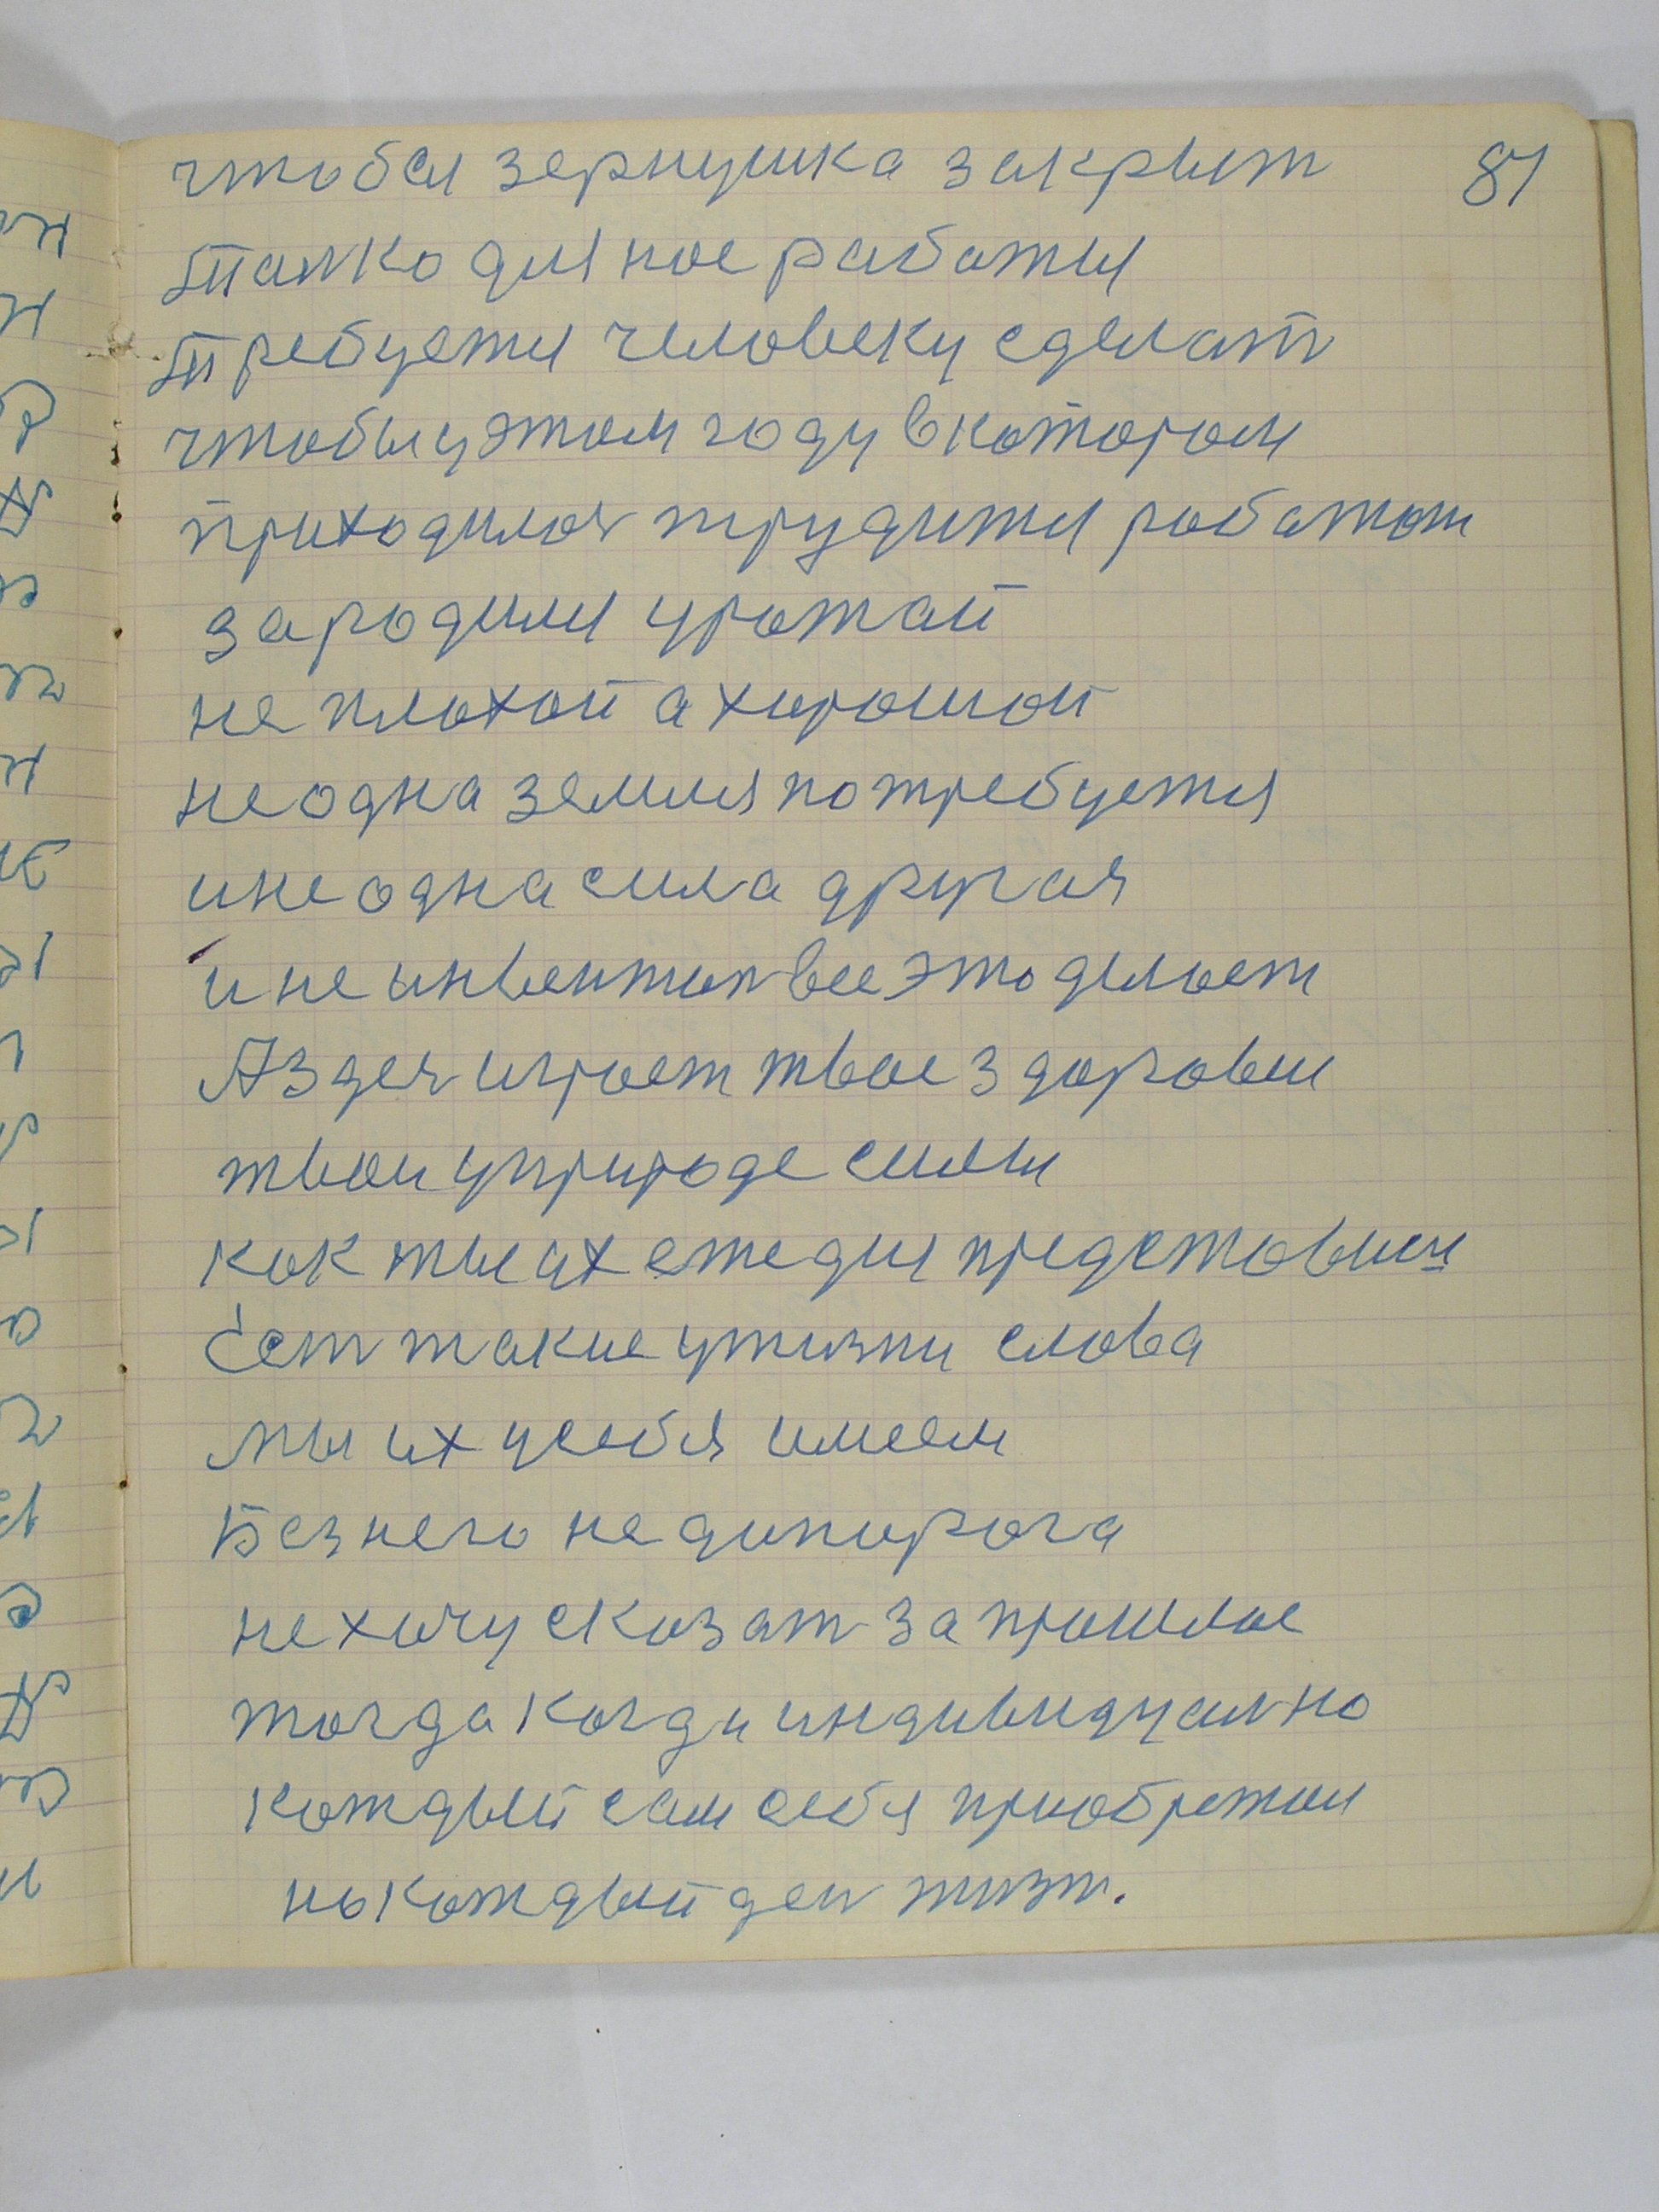 чтобы зернушка закрыт 81
талко для ное работы
требуетя человеку сделат
чтобы у этом году в котором
приходился трудитя работат
зародил урожай
не плохой а хорошой
не одна земля потребуетя
и не одна сила другая
и не инвентар все это делает
А здеся играет твое здоровии
твои у природе силы
как ты их ежедня представиш
Ест такие у жизни слова
мы их у себя имеем
Без него не допорога
не хочу сказат за прошлое
тогда когда индивидуално
каждый сам себя приобретал
на каждый ден жизн.